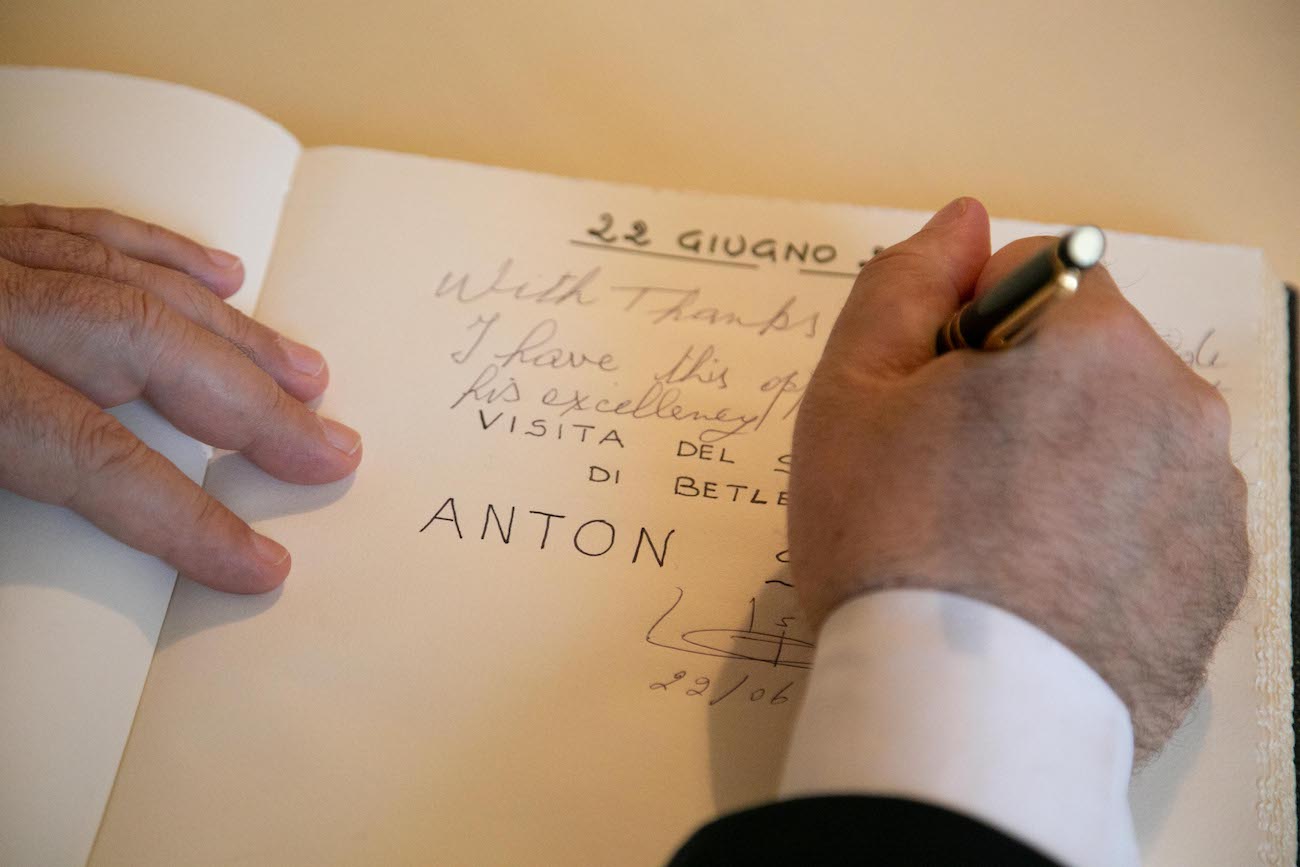 22 GIUGNO
With Thanks
I have this
his excellency
VISITA DEL
DI BETLE
ANTON
22/06